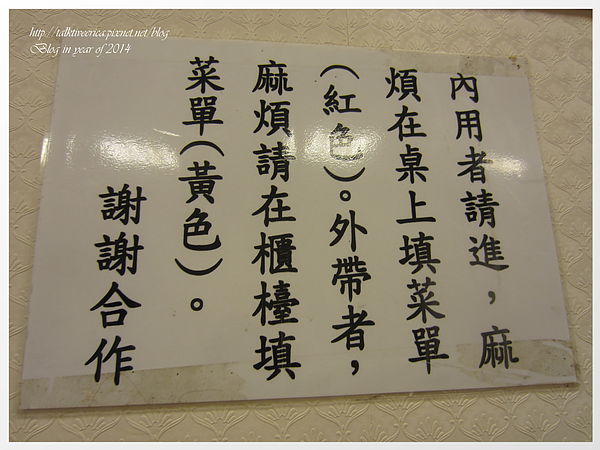 http://talktiveerica.pixnet.net/blog
Blog in year of 2014
內用者請進，麻
煩在桌上填菜單
(紅色)。外帶者，
麻煩請在櫃檯填
菜單(黃色)。
謝謝合作